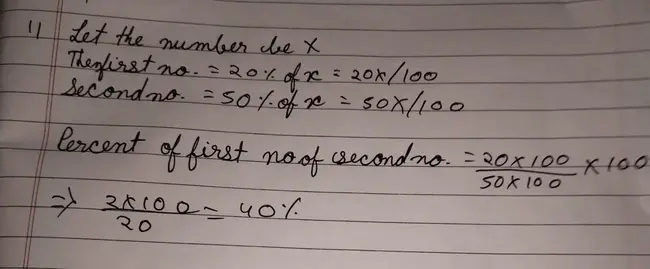 11 Let the number be x
The first no. = 20% of x = 20x/100
Second no. = 50% of x = 50x/100
Percent of first no of second no. = 20×100/50×100 × 100
⇒ 2×100/20 = 40%